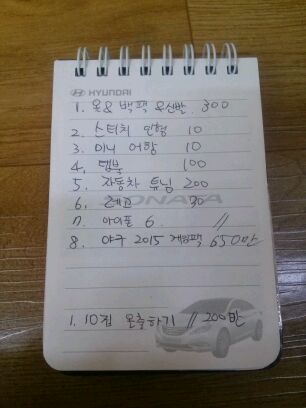 HYUNDAI
1. 옷& 백팩 &신발 300
2. 스티치 인형 10
3. 미니 어항 10
4. 탭북 100
5. 자동차 튜닝 200
6. 레고 30
SONATA
7. 아이폰 6. //
8. 야구 2015 게임팩 650만
1. 10집 몰출하기 // 200만